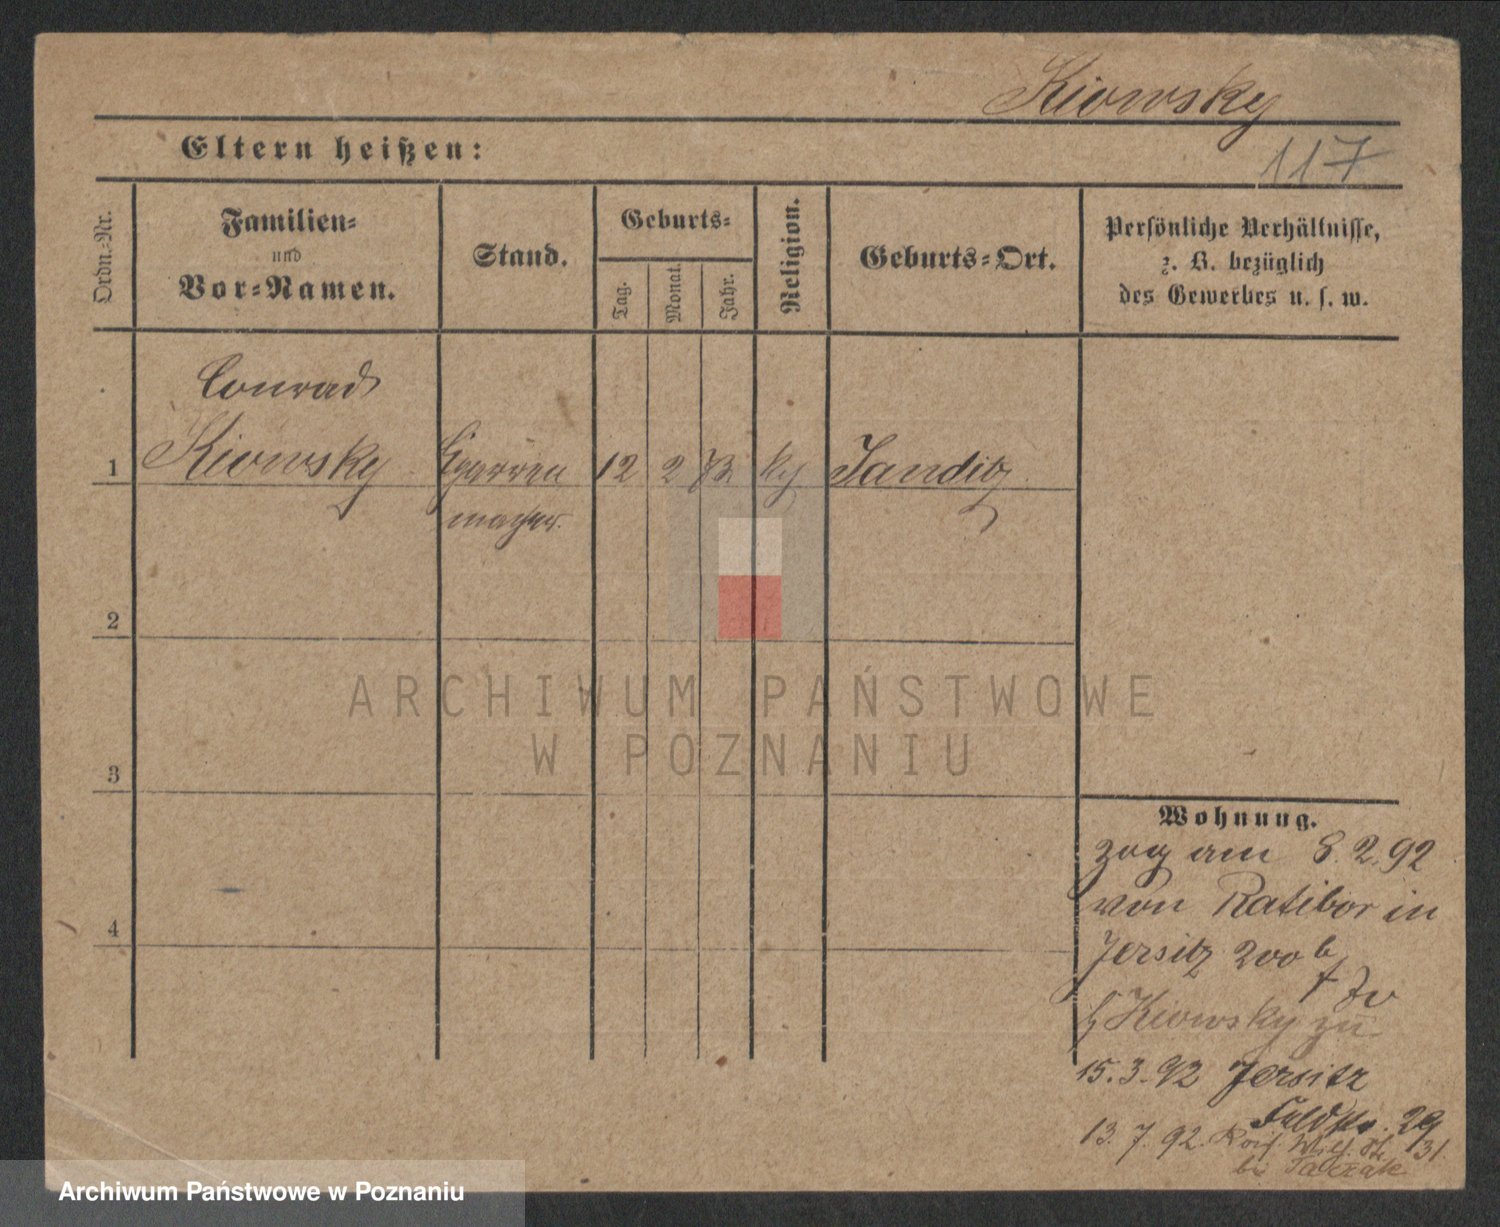 Kiowsky
Eltern heißen:
117
Ordn.-Nr.
Familien-
und
Vor-Namen.
Stand.
Geburts-
Tag.
Monat.
Jahr.
Religion.
Geburts-Ort.
Persönliche Verhältnisse,
z. B. bezüglich
des Gewerbes u. s. w.
Conrad
1 Kiowsky Cigarren 12 2 73 Janditz
macher.
2
ARCHIWUM PAŃSTWOWE
W POZNANIU
3
Wohnung.
zog am 8.2.92
von Ratibor in
4
Jersitz 200 b
Kiowsky zu
15.3.92 Jersitz
Feldstr. 29
13.7.92. Wilh. St. 31.
Archiwum Państwowe w Poznaniu